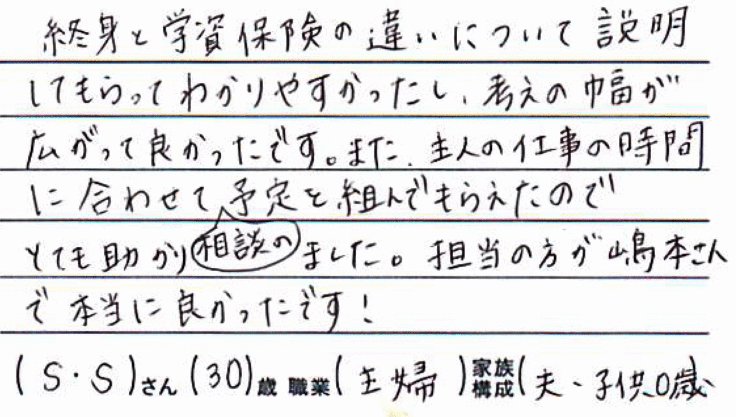 終身と学資保険の違いについて説明
してもらってわかりやすかったし、考えの巾畐が
広がって良かったです。また、主人の仕事の時間
に合わせて予定を組んでもらえたので
相談の
とても助かりました。担当の方が嶋本さん
で本当に良かったです!
(S・S)さん(30)歳 職業(主婦)家族構成(夫、子供0歳